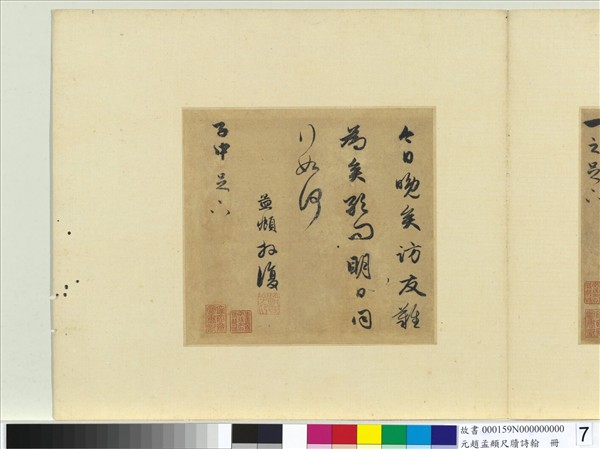 今日晚矣訪友難
為矣歇明日同
行如何
孟頫拜復
子中足下
之足下
故書 000159N000000000
元趙孟頫尺牘詩翰 冊
7